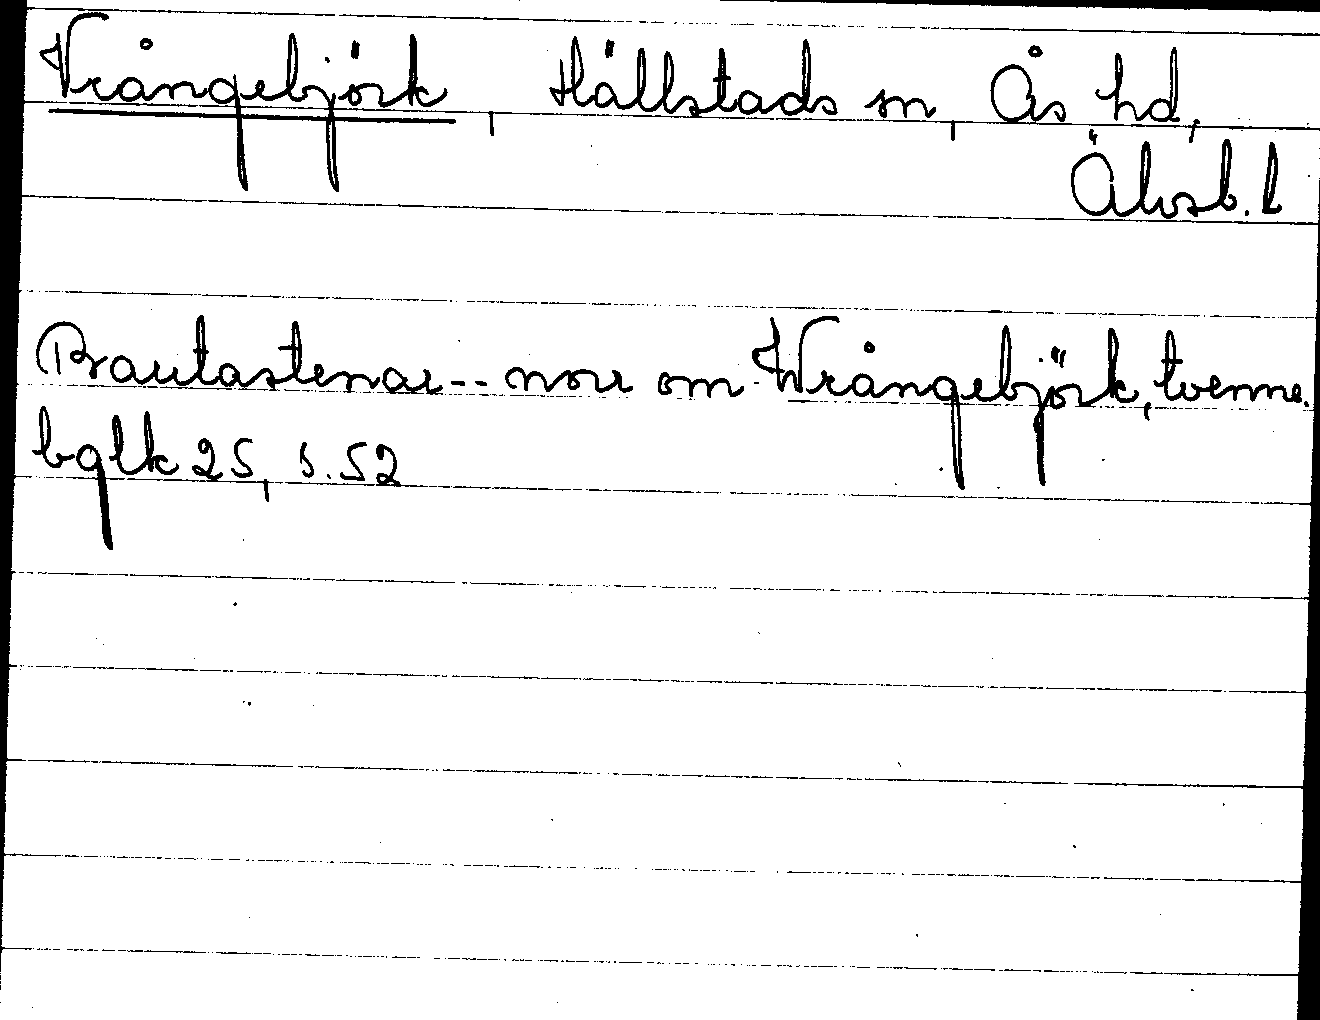 Vrångebjörk, Hällstads sn, Ås hd,
Älvsb. l
Brautastenar -- norr om Wrångebjörk, tvenne.
bglk 25, s. 52